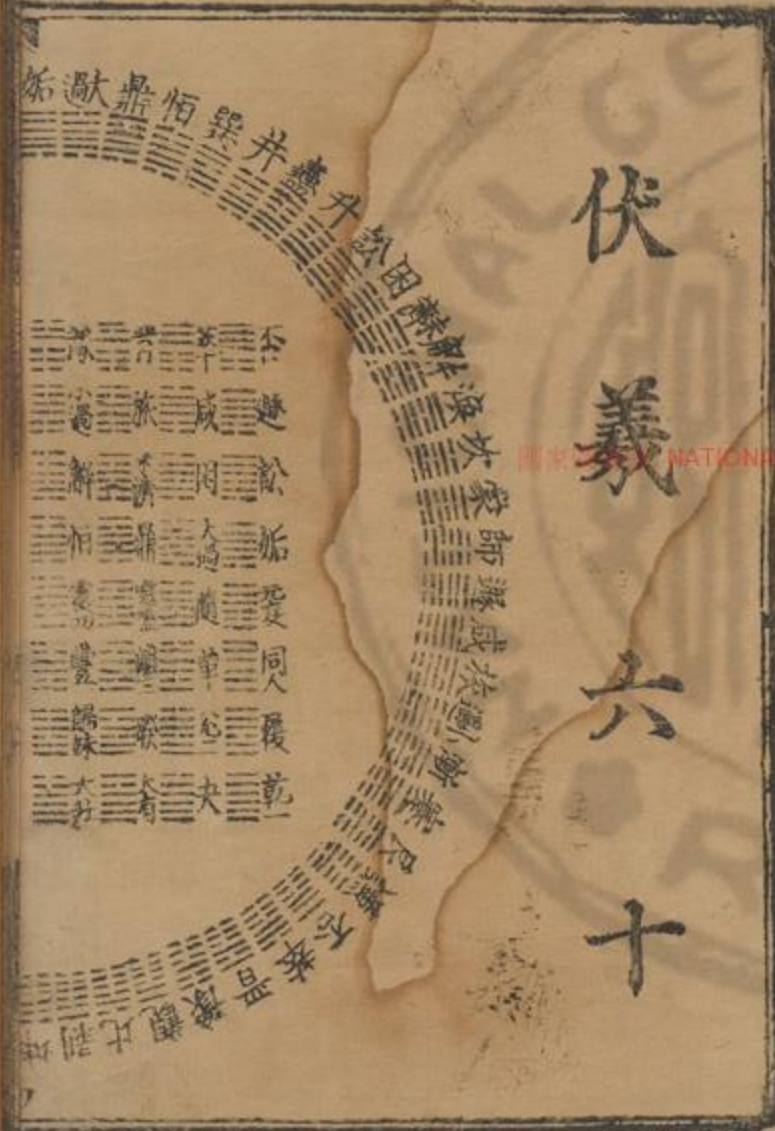 伏羲六十
姤
大過
鼎
恒
巽
井
蠱
升
訟
困
解
渙
坎
蒙
師
遯
咸
旅
小過
漸
蹇
艮
謙
否
萃
晉
豫
觀
比
剝
遯 訟 姤 同人 履 乾一
咸 困 大過 隨 革 兌二 夬
旅 未濟 鼎 睽 大有
豫 小過 解 恒 豐 歸妹 大壯
國家 NATIONA